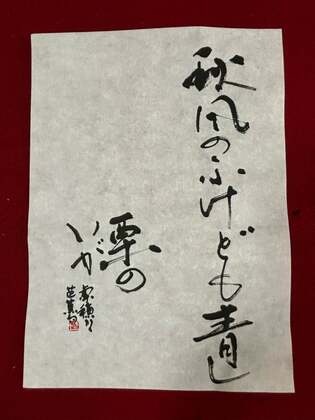 秋風のふけども青し
栗の
いが
芭蕉句